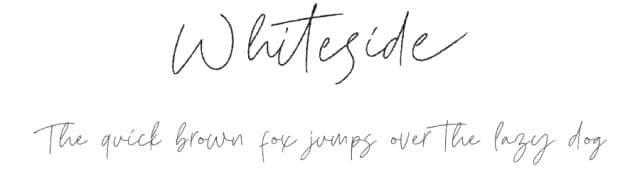 Whiteside
The quick brown fox jumps over the lazy dog